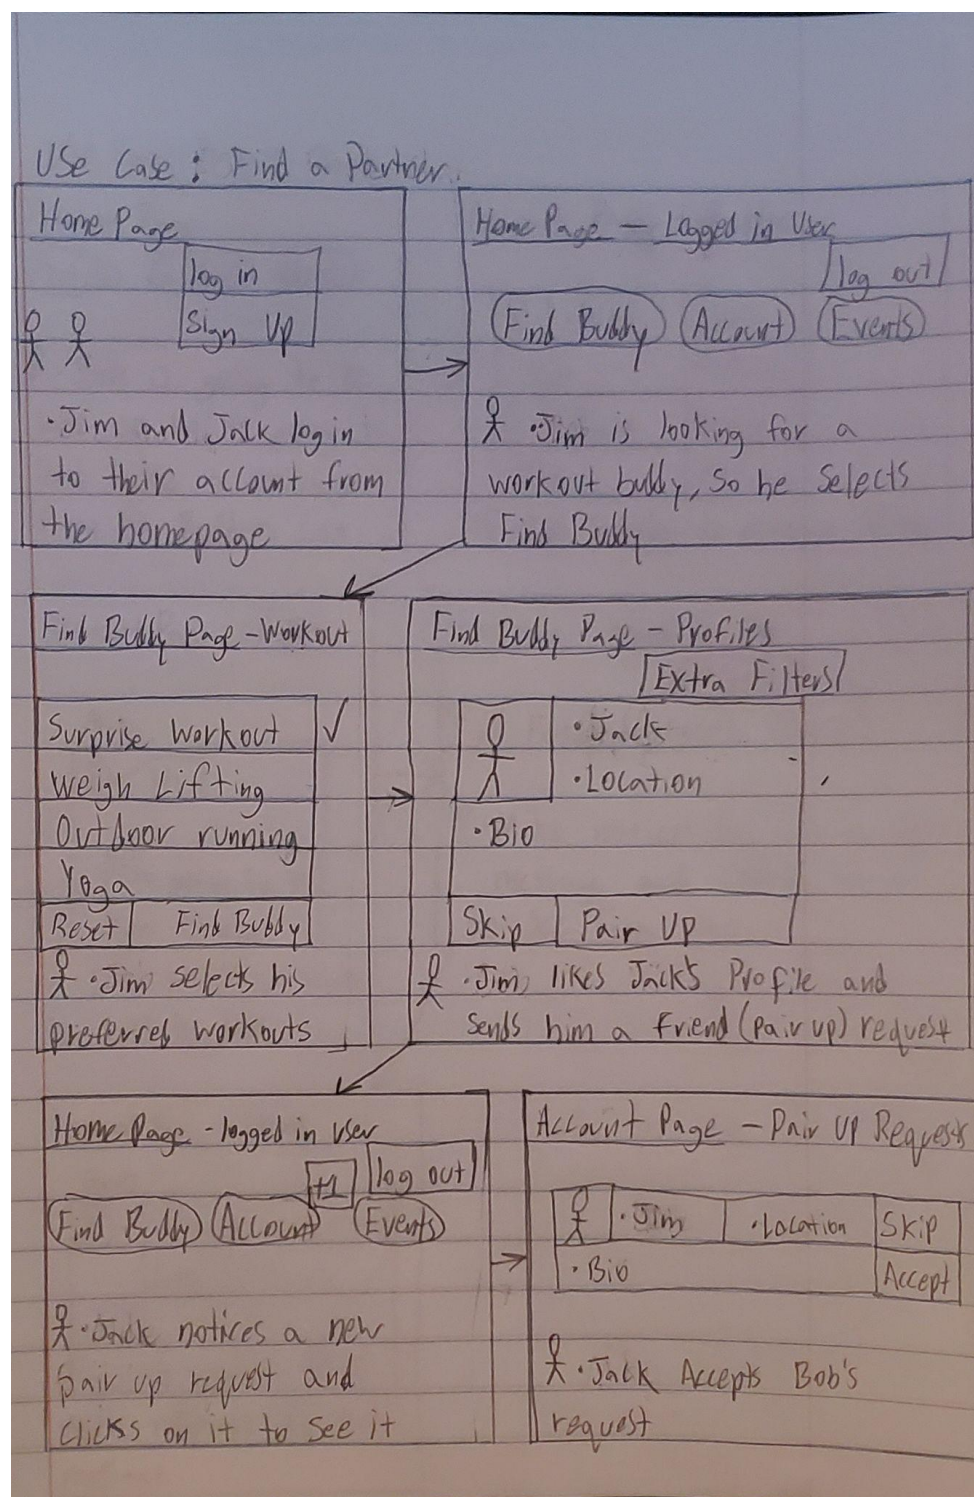 Use Case: Find a Partner.
Home Page
log in
Sign Up
·Jim and Jack login
to their account from
the homepage
Home Page — Logged in User
log out
Find Buddy Account Events
·Jim is looking for a
workout buddy, so he selects
Find Buddy
Find Buddy Page - Workout
Surprise Workout
Weigh Lifting
Outdoor running
Yoga
Reset Find Buddy
·Jim selects his
preferred workouts
Find Buddy Page - Profiles
Extra Filters
·Jack
·Location
·Bio
Skip Pair Up
·Jim likes Jack's Profile and
sends him a friend (pair up) request
Home Page - logged in user
+1 log out
Find Buddy Account Events
·Jack notices a new
pair up request and
clicks on it to see it
Account Page - Pair Up Requests
·Jim ·Location Skip
·Bio Accept
·Jack Accepts Bob's
request